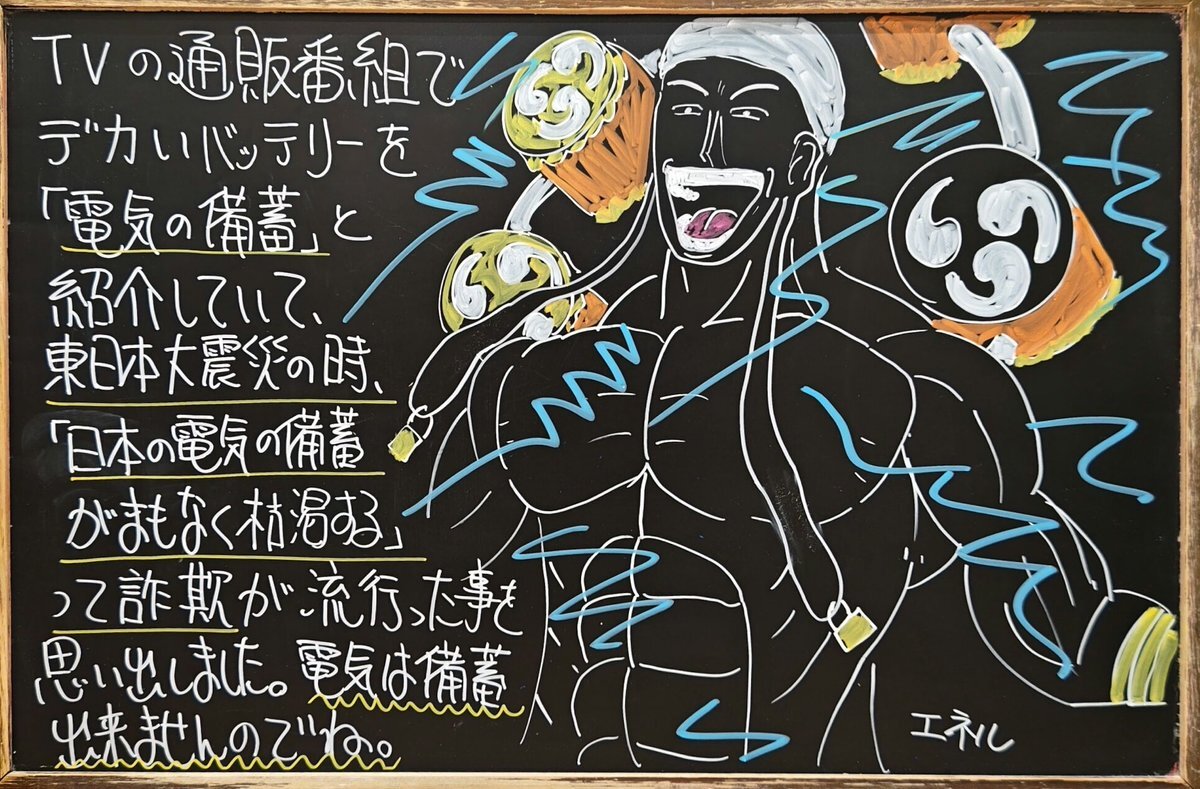 TVの通販番組で
デカいバッテリーを
「電気の備蓄」と
紹介していて、
東日本大震災の時、
「日本の電気の備蓄
がまもなく枯渇する」
って詐欺が流行った事を
思い出しました。電気は備蓄
出来ませんのでね。
エネル